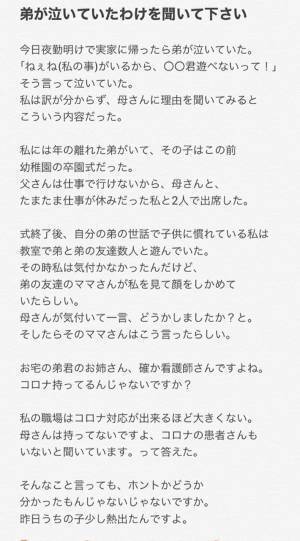 弟が泣いていたわけを聞いて下さい
今日夜勤明けで実家に帰ったら弟が泣いていた。
「ねぇね(私の事)がいるから、〇〇君遊べないって！」
そう言って泣いていた。
私は訳が分からず、母さんに理由を聞いてみると
こういう内容だった。
私には年の離れた弟がいて、その子はこの前
幼稚園の卒園式だった。
父さんは仕事で行けないから、母さんと、
たまたま仕事が休みだった私と2人で出席した。
式終了後、自分の弟の世話で子供に慣れている私は
教室で弟と弟の友達数人と遊んでいた。
その時私は気付かなかったんだけど、
弟の友達のママさんが私を見て顔をしかめて
いたらしい。
母さんが気付いて一言、どうかしましたか？と。
そしたらそのママさんはこう言ったらしい。
お宅の弟君のお姉さん、確か看護師さんですよね。
コロナ持ってるんじゃないですか？
私の職場はコロナ対応が出来るほど大きくない。
母さんは持ってないですよ、コロナの患者さんも
いないと聞いています。って答えた。
そんなこと言っても、ホントかどうか
分かったもんじゃないじゃないですか。
昨日うちの子少し熱出たんですよ。